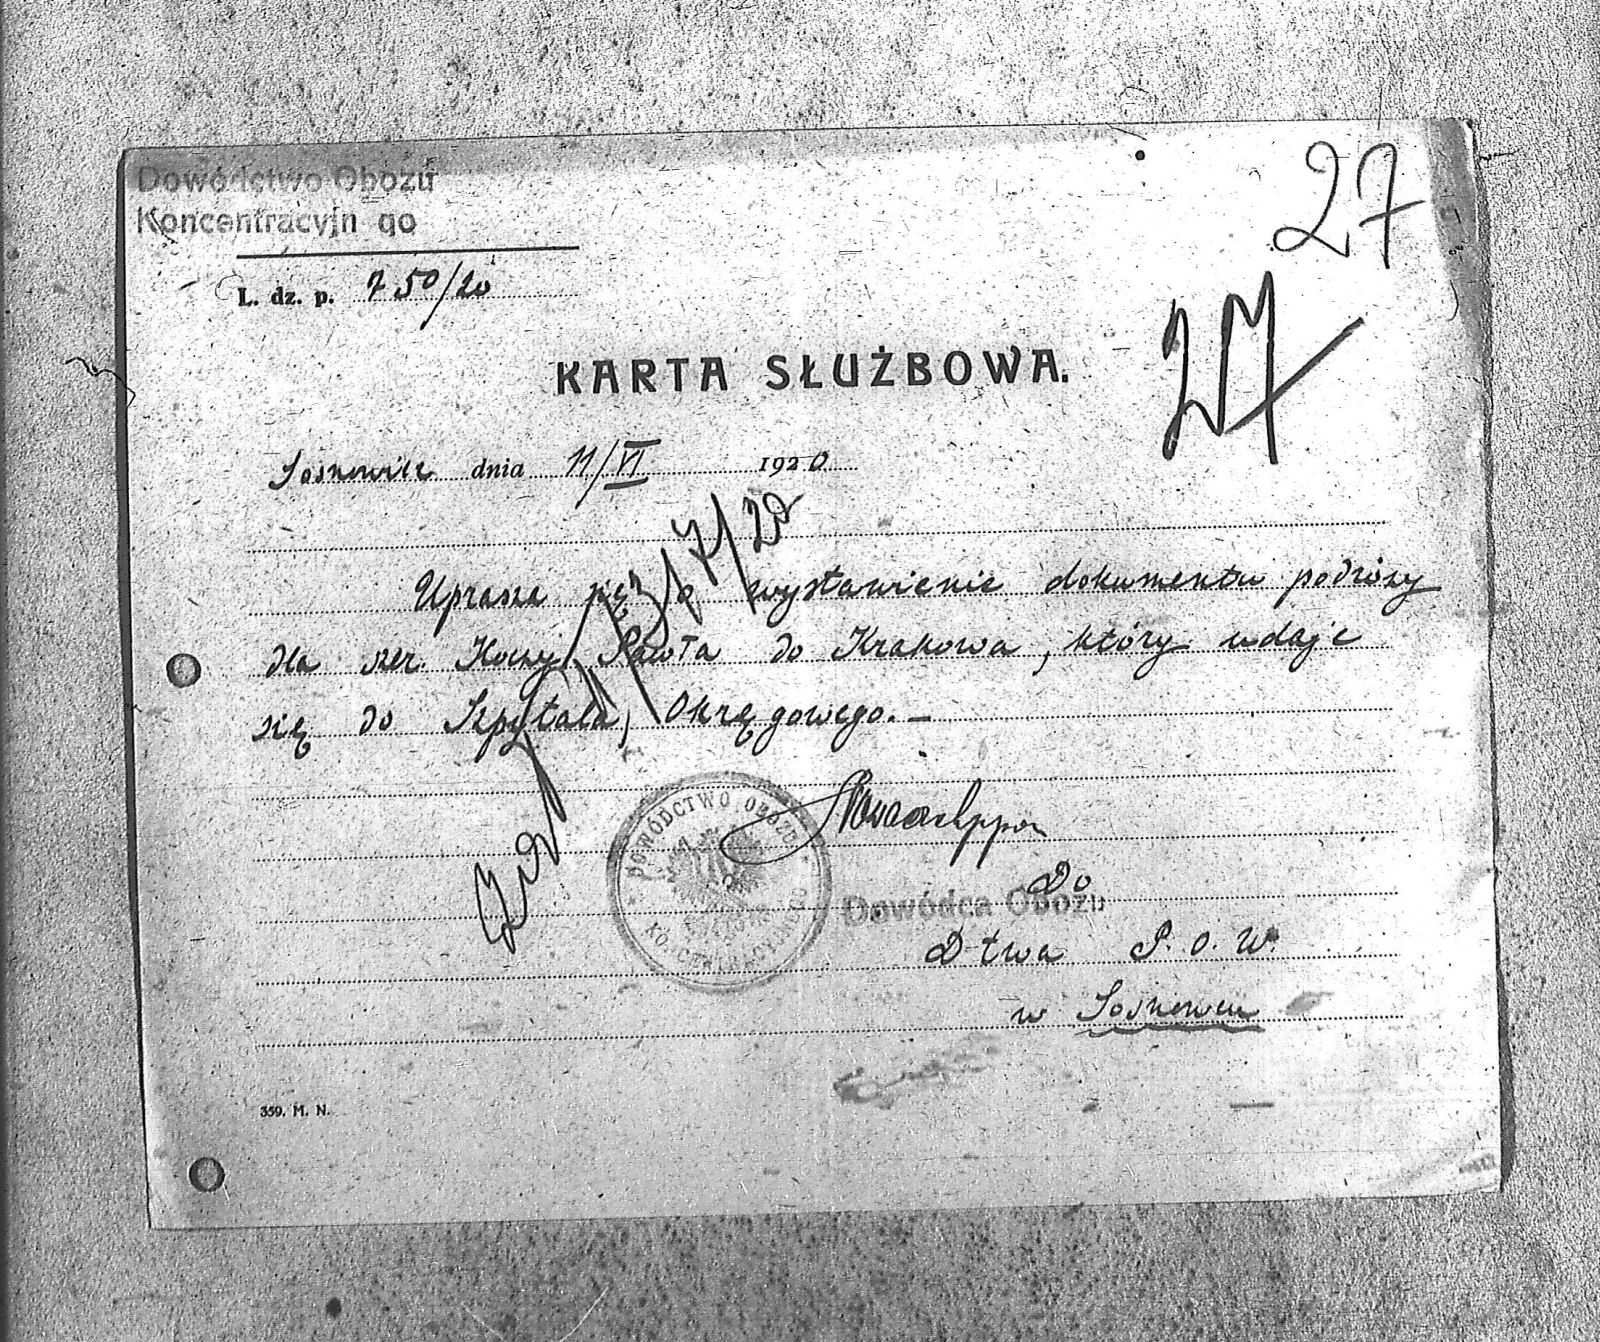 Dowództwo Obozu
Koncentracyjn go
27
L. dz. p. 750/20
27
KARTA SŁUŻBOWA.
Sosnowice dnia 11/VI 1920
Uprasza się o wystawienie dokumentu podróży
dla szer. Koczy Pawła do Krakowa, który udaje
się do Szpitala, Okręgowego.—
DOWÓDZTWO OBOZU
KONCENTRACYJNEGO
Do
Dowódca Obozu
D-twa P.O.W.
w Sosnowcu
359. M. N.